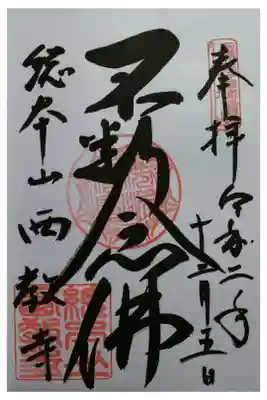 奉拝 令和二年
十二月五日
不断念佛
総本山西教寺